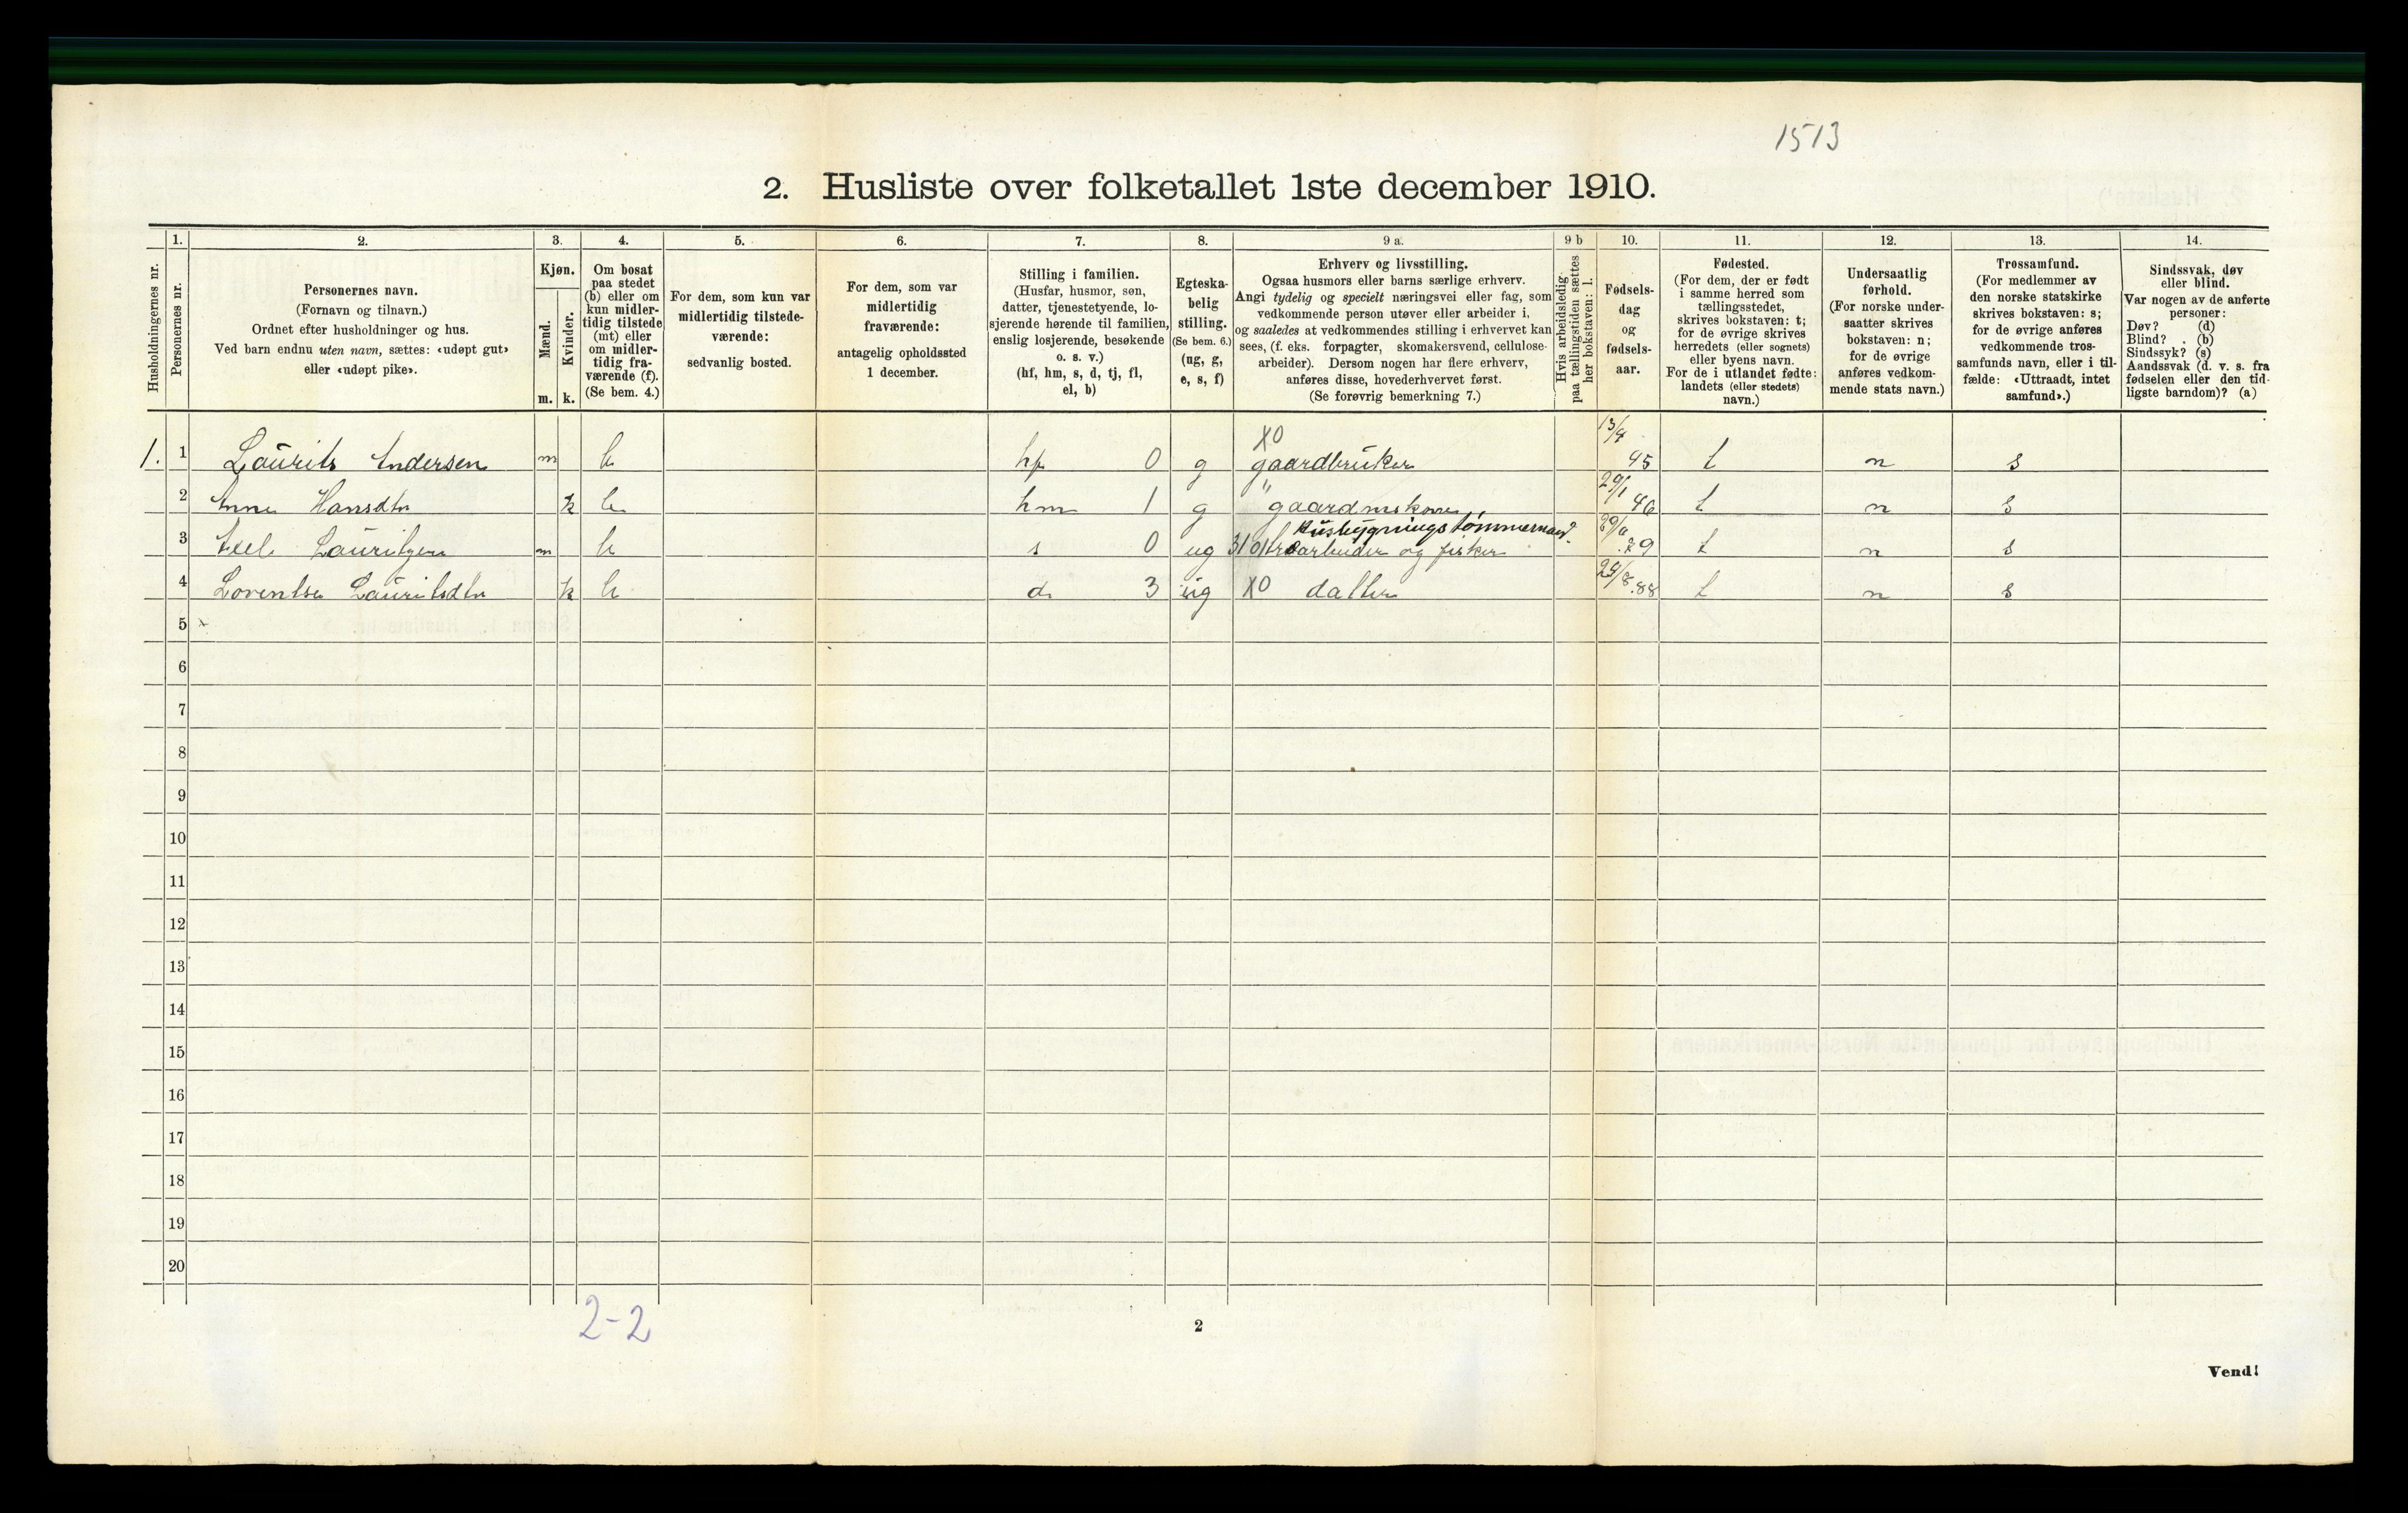 1513
2. Husliste over folketallet 1ste december 1910.
Husholdningernes nr.
1.
Personernes nr.
2.
Personernes navn.
(Fornavn og tilnavn.)
Ordnet efter husholdninger og hus.
Ved barn endnu uten navn, sættes: «udøpt gut»
eller «udøpt pike».
3.
Kjøn.
Mænd.
Kvinder.
m. k.
4.
Om bosat
paa stedet
(b) eller om
kun midler-
tidig tilstede
(mt) eller
om midler-
tidig fra-
værende (f).
(Se bem. 4.)
5.
For dem, som kun var
midlertidig tilstede-
værende:
sedvanlig bosted.
6.
For dem, som var
midlertidig
fraværende:
antagelig opholdssted
1 december.
7.
Stilling i familien.
(Husfar, husmor, søn,
datter, tjenestetyende, lo-
sjerende hørende til familien,
enslig losjerende, besøkende
o. s. v.)
(hf, hm, s, d, tj, fl,
el, b)
8.
Egteska-
belig
stilling.
(Se bem. 6.)
(ug, g,
e, s, f)
9 a.
Erhverv og livsstilling.
Ogsaa husmors eller barns særlige erhverv.
Angi tydelig og specielt næringsvei eller fag, som
vedkommende person utøver eller arbeider i,
og saaledes at vedkommendes stilling i erhvervet kan
sees, (f. eks. forpagter, skomakersvend, cellulose-
arbeider). Dersom nogen har flere erhverv,
anføres disse, hovederhvervet først.
(Se forøvrig bemerkning 7.)
9 b
Hvis arbeidsledig
paa tællingstiden sættes
her bokstaven: l.
10.
Fødsels-
dag
og
fødsels-
aar.
11.
Fødested.
(For dem, der er født
i samme herred som
tællingsstedet,
skrives bokstaven: t;
for de øvrige skrives
herredets (eller sognets)
eller byens navn.
For de i utlandet fødte:
landets (eller stedets)
navn.)
12.
Undersaatlig
forhold.
(For norske under-
saatter skrives
bokstaven: n;
for de øvrige
anføres vedkom-
mende stats navn.)
13.
Trossamfund.
(For medlemmer av
den norske statskirke
skrives bokstaven: s;
for de øvrige anføres
vedkommende tros-
samfunds navn, eller i til-
fælde: «Uttraadt, intet
samfund».)
14.
Sindssvak, døv
eller blind.
Var nogen av de anførte
personer:
Døv? (d)
Blind? (b)
Sindssyk? (s)
Aandssvak (d. v. s. fra
fødselen eller den tid-
ligste barndom)? (a)
X0
1. 1 Laurits Andersen m b hf 0 g gaardbruker 13/4 45 t n s
2 Anne Hansdtr k b hm 1 g " gaardmskone 29/1 46 t n s
Husbygningstømmermand?
3 Axel Lauritzen m b s 0 ug arbeider og fisker 79 t n s
4 Lorentse Lauritsdtr k b d 3 ug X0 datter 24/8.88 t n s
5
6
7
8
9
10
11
12
13
14
15
16
17
18
19
20
2-2
2
Vend!